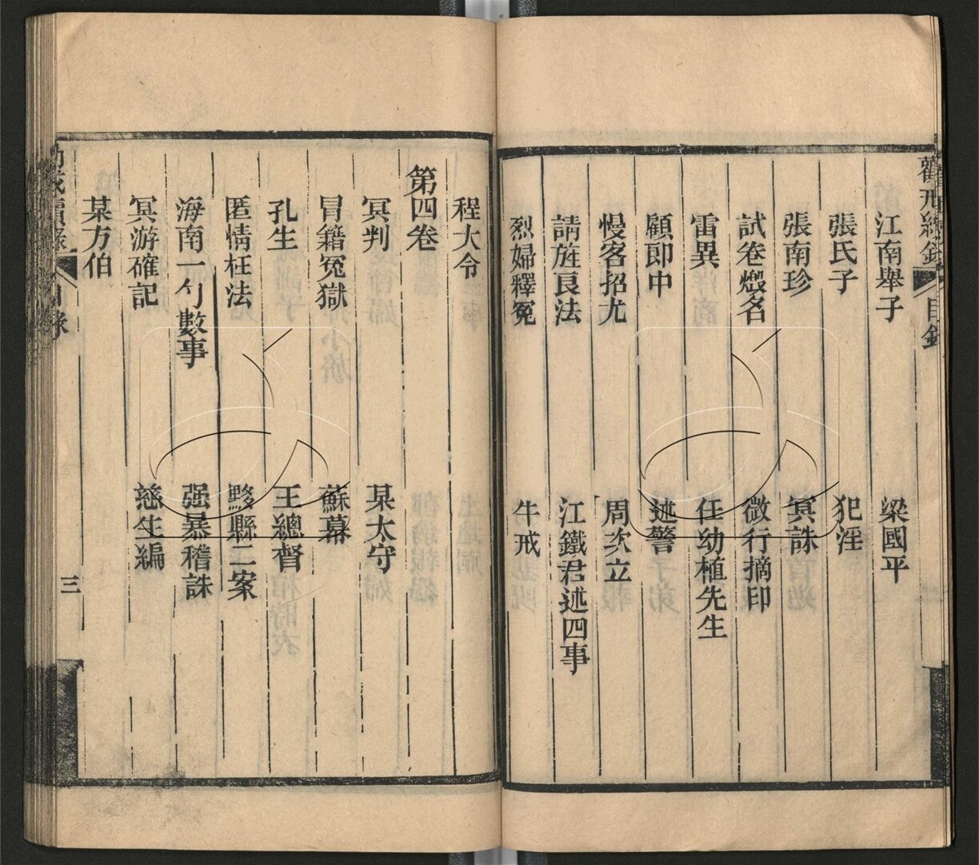 勸戒續錄 目錄
江南舉子 梁國平
張氏子 犯淫
張南珍 冥誅
試卷燬名 微行摘印
雷異 任幼植先生
顧郎中 述警
慢客招尤 周次立
請旌良法 江鐵君述四事
烈婦釋冤 牛戒
程大令
第四卷
冥判 某太守
冒籍冤獄 蘇幕
孔生 王總督
匿情枉法 黟縣二案
海南一勺數事 强暴稽誅
冥游確記 慈生編
某方伯
勸戒續錄 目錄 三